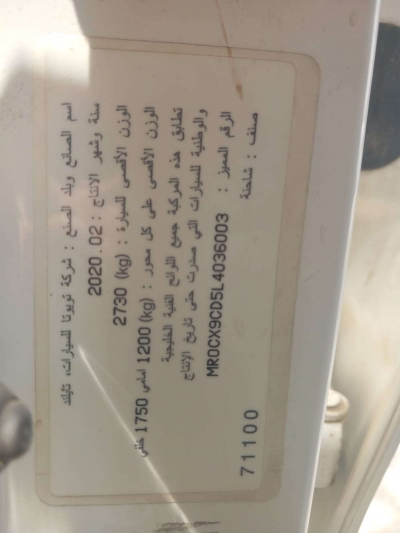 اسم الصانع وبلد الصنع : شركة تويوتا للسيارات، تايلاند
سنة وشهر الإنتاج : 2020.02
الوزن الأقصى للسيارة : (kg) 2730
الوزن الأقصى على كل محور : (kg) 1200 امامي 1750 خلفي
تطابق هذه المركبة جميع اللوائح الفنية الخليجية
والوطنية للسيارات التي صدرت حتى تاريخ الإنتاج
الرقم المميز : MR0CX9CD5L4036003
صنف : شاحنة
71100